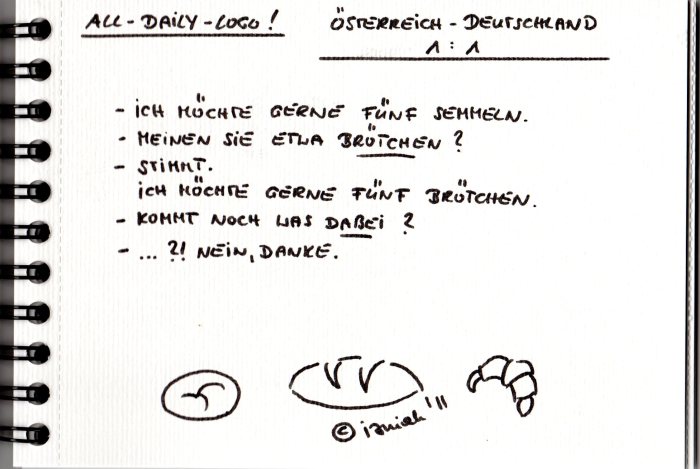 ALL-DAILY-LOGO!
ÖSTERREICH - DEUTSCHLAND
1 : 1
- ICH MÖCHTE GERNE FÜNF SEMMELN.
- MEINEN SIE ETWA BRÖTCHEN?
- STIMMT.
ICH MÖCHTE GERNE FÜNF BRÖTCHEN.
- KOMMT NOCH WAS DABEI?
- ... ?! NEIN, DANKE.